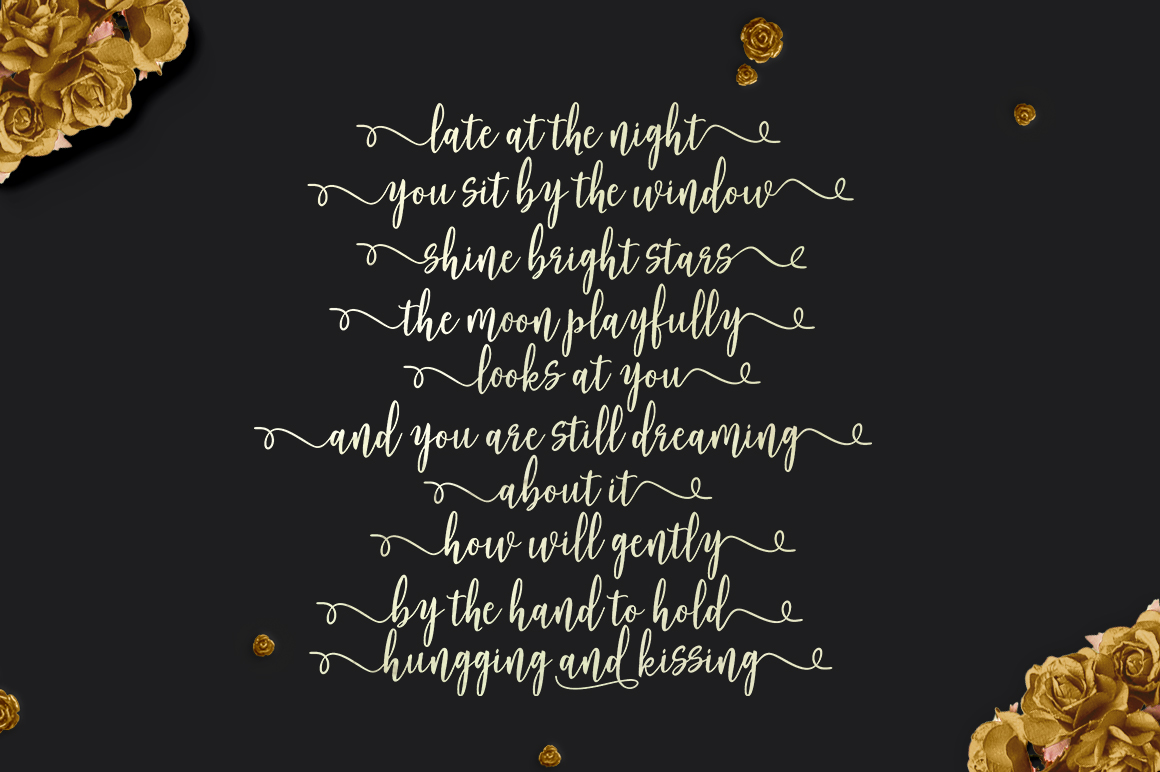 late at the night
you sit by the window
shine bright stars
the moon playfully
looks at you
and you are still dreaming
about it
how will gently
by the hand to hold
hungging and kissing